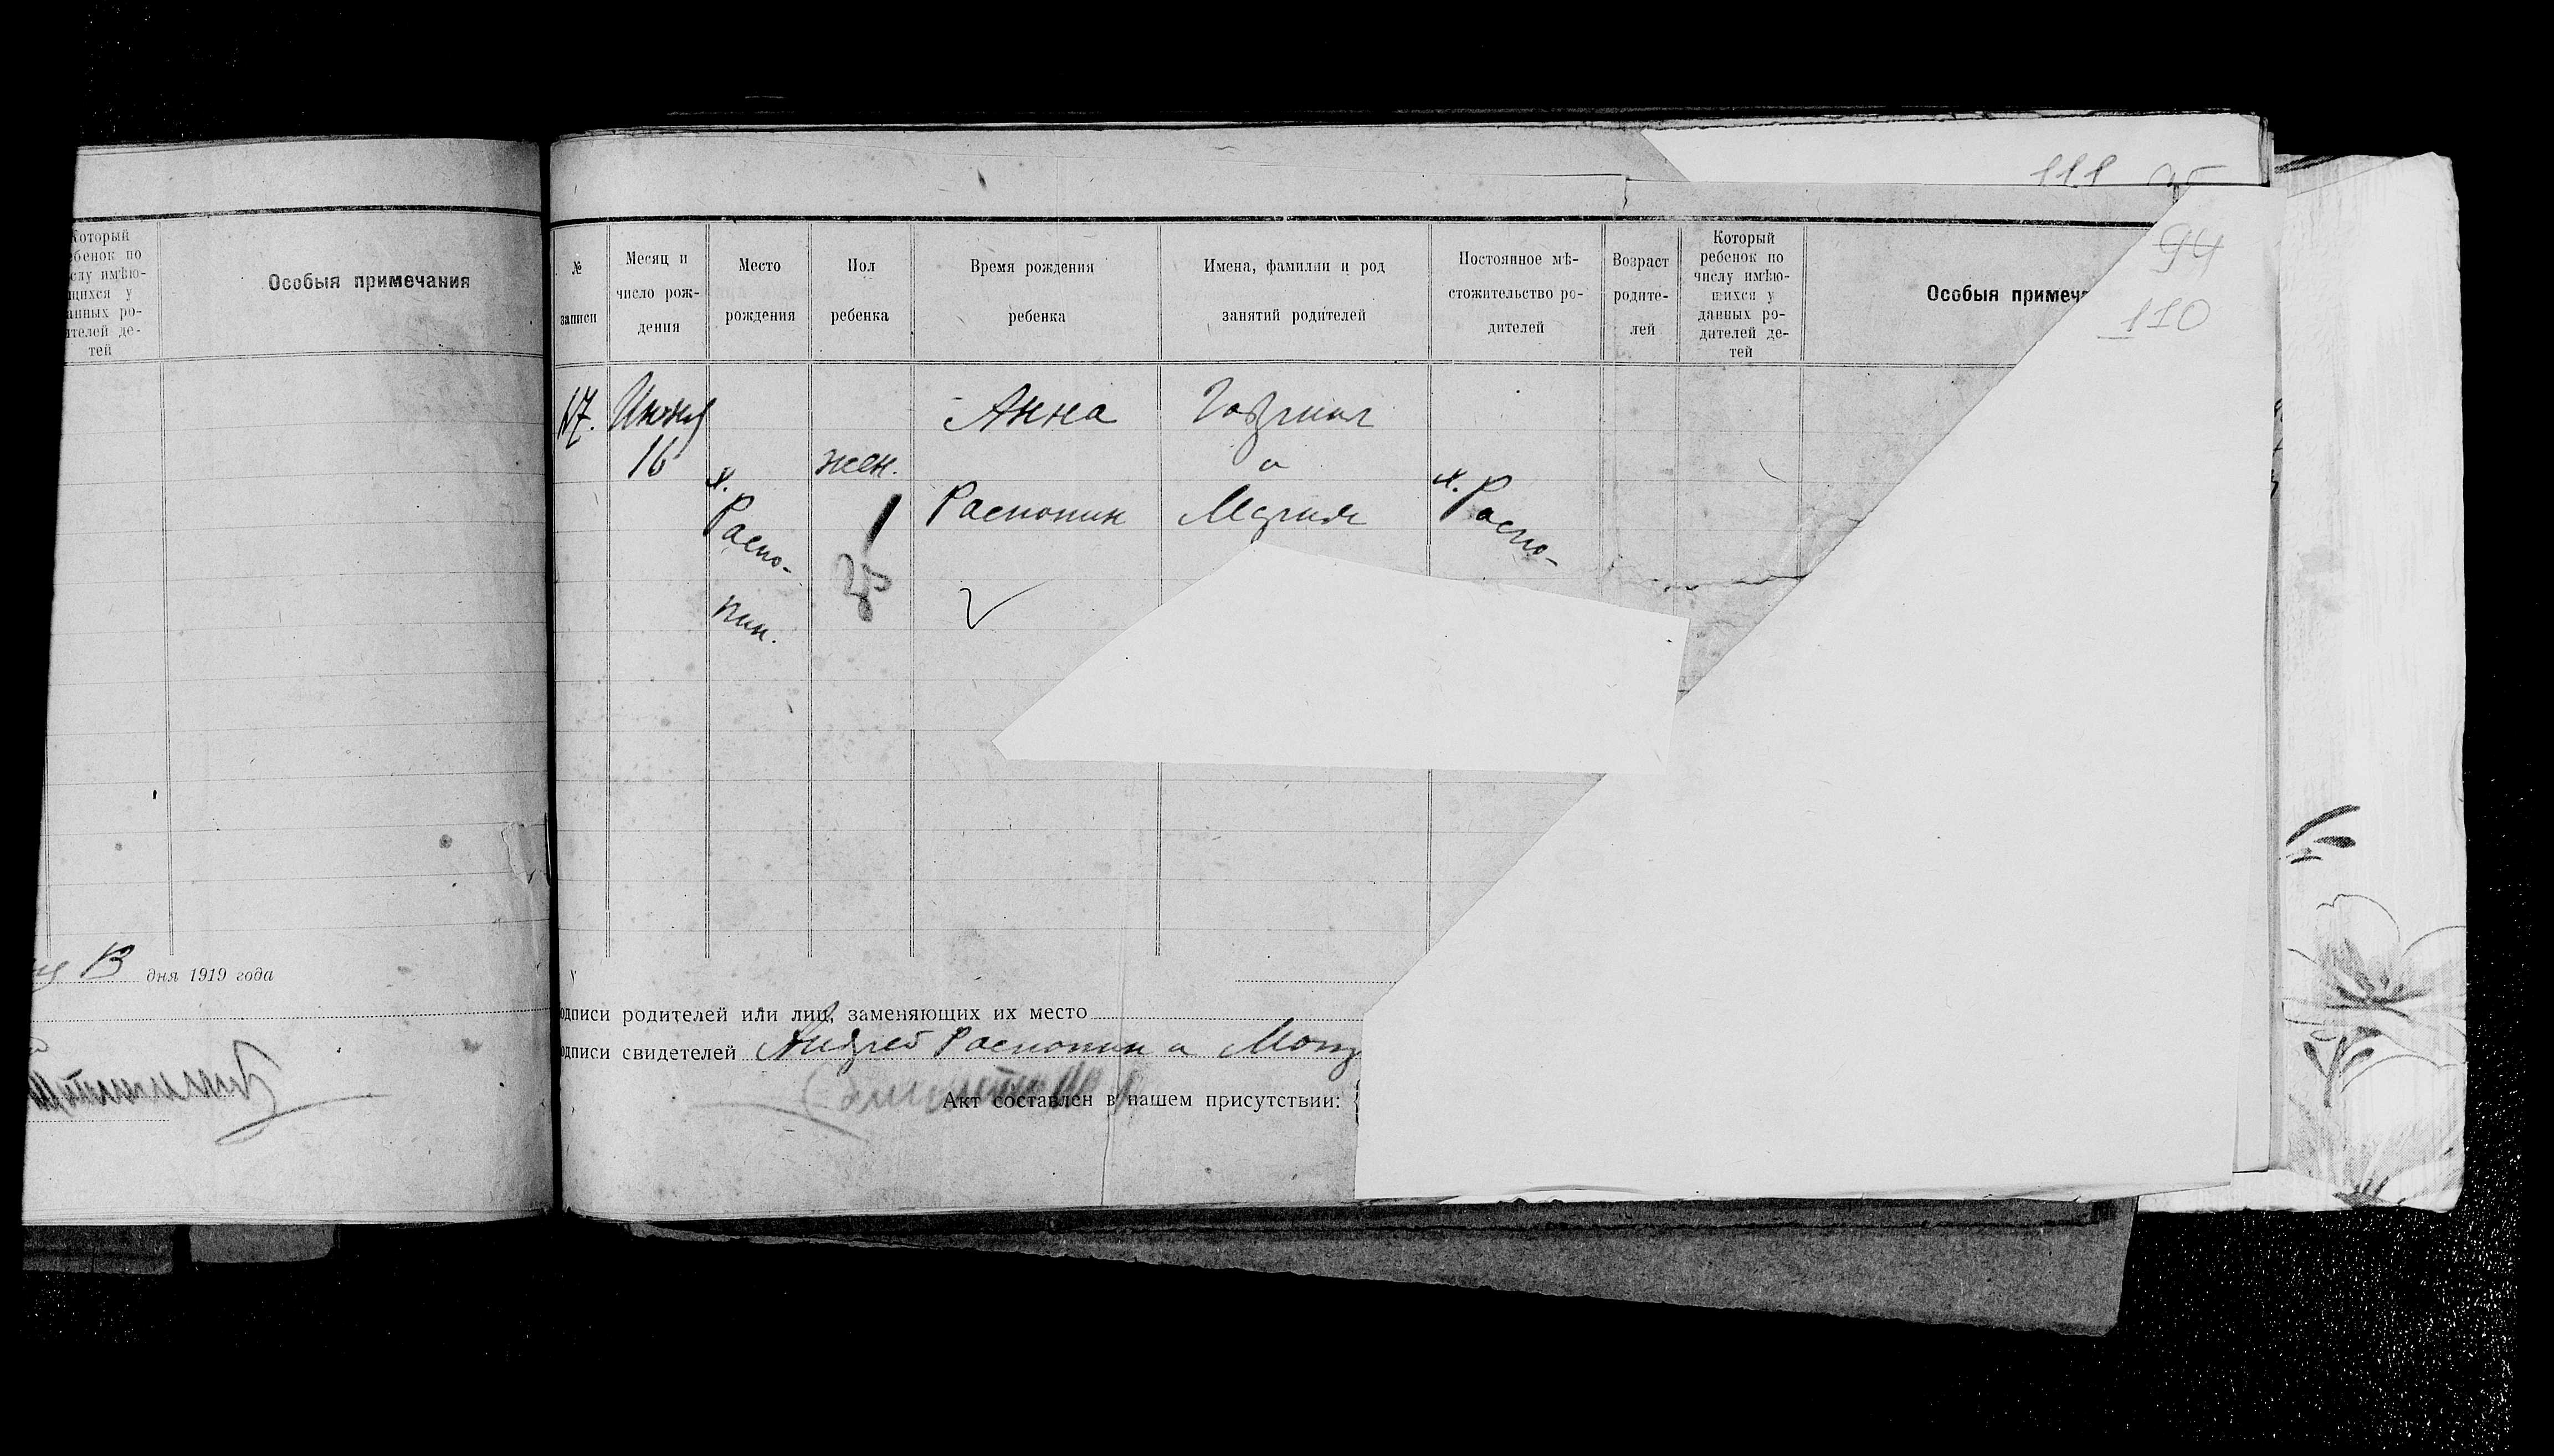 Который
ебенок по
слу имѣю-
щихся у
анных ро-
ителей де-
тей
Особыя примечания
13 дня 1919 года
111
94
110
№
записи
Месяц и
число рож-
дения
Место
рождения
Пол
ребенка
Время рождения
ребенка
Имена, фамилии и род
занятий родителей
Постоянное мѣ-
стожительство ро-
дителей
Возраст
родите-
лей
Который
ребенок по
числу имѣю-
шихся у
данных ро-
дителей де-
тей
Особыя примеча
17.
Июня
16
х.
Распо-
пин.
жен.
Анна
Распопин
Гавриил
и
Мария
х. Распо-
одписи родителей или лиц, заменяющих их место
одписи свидетелей Андрей Распопин и
Акт составлен в нашем присутствии: